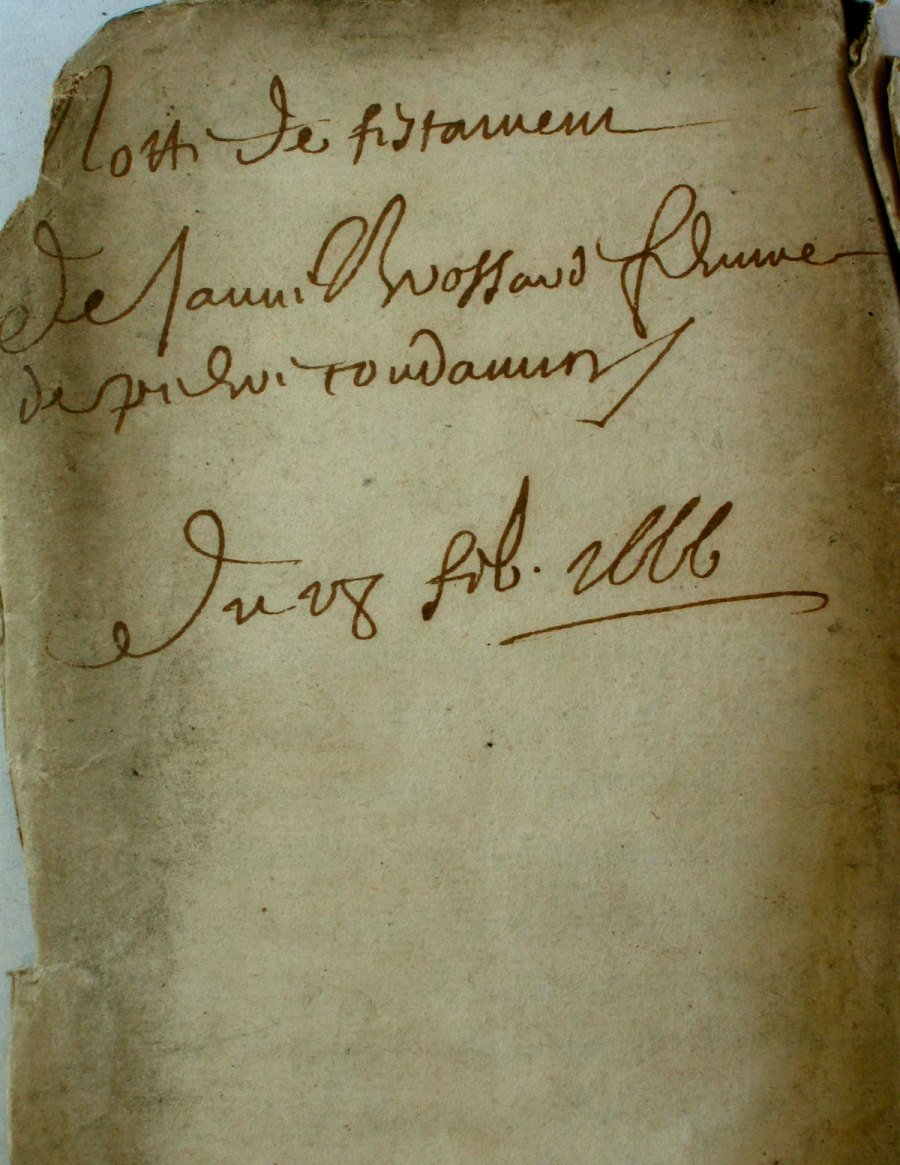 Notte de testament
de Janne Brossard femme
de pierre Condamin
Du 18 feb. 1666